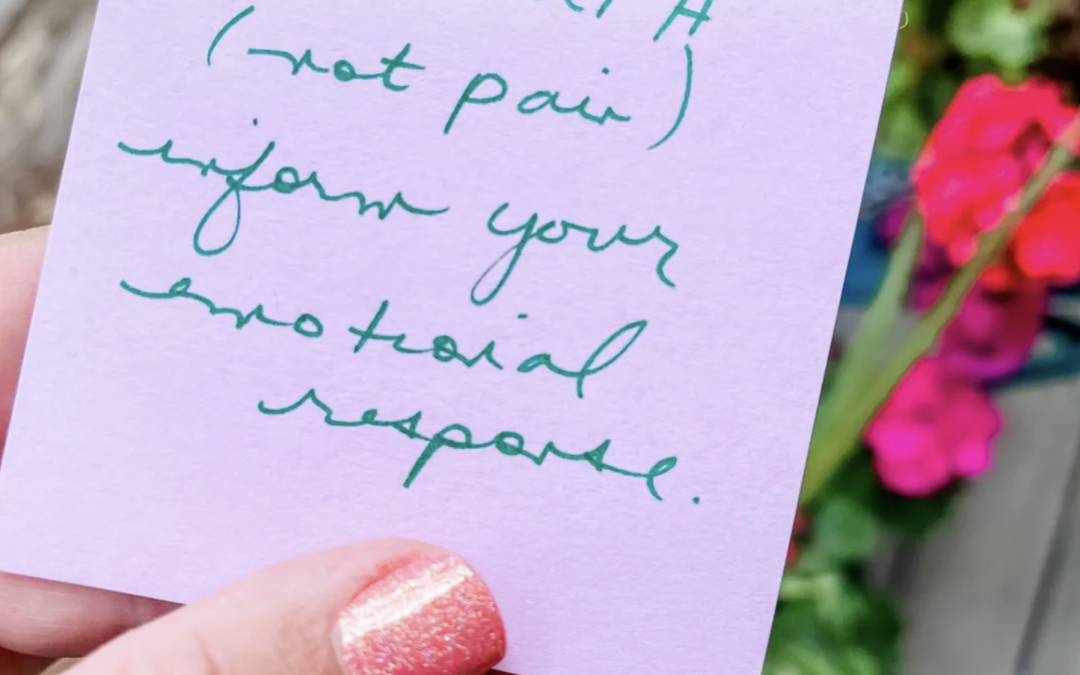 (not pair)
inform your
emotional
response.